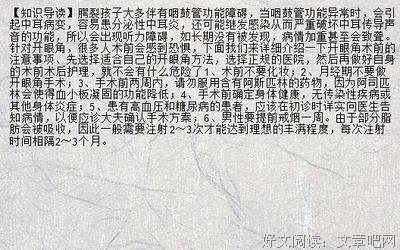 【知识导读】腭裂孩子大多伴有咽鼓管功能障碍，当咽鼓管功能异常时，会引
起中耳病变，容易患分泌性中耳炎，还可能继发感染从而严重破坏中耳传导声
音的功能，所以会出现听力障碍，如长期没有被发现，病情加重甚至会致聋。
针对开眼角，很多人术前会感到恐惧，下面我们来详细介绍一下开眼角术前的
注意事项、先选择适合自己的开眼角方法，选择正规的医院，然后再做好自身
的术前术后护理，就不会有什么危险了1、术前不要化妆；2、月经期不要做
开眼角手术；3、手术前两周内，请勿服用含有阿斯匹林的药物，因为阿司匹
林会使得血小板凝固的功能降低；4、手术前确定身体健康，无传染性疾病或
其他身体炎症；5、患有高血压和糖尿病的患者，应该在初诊时详实向医生告
知病情，以便应诊大夫确认手术方案；6、男性要提前戒烟一周。由于部分脂
肪会被吸收，因此一般需要注射2～3次才能达到理想的丰满程度，每次注射
时间相隔2～3个月。
好文阅读：文章吧网